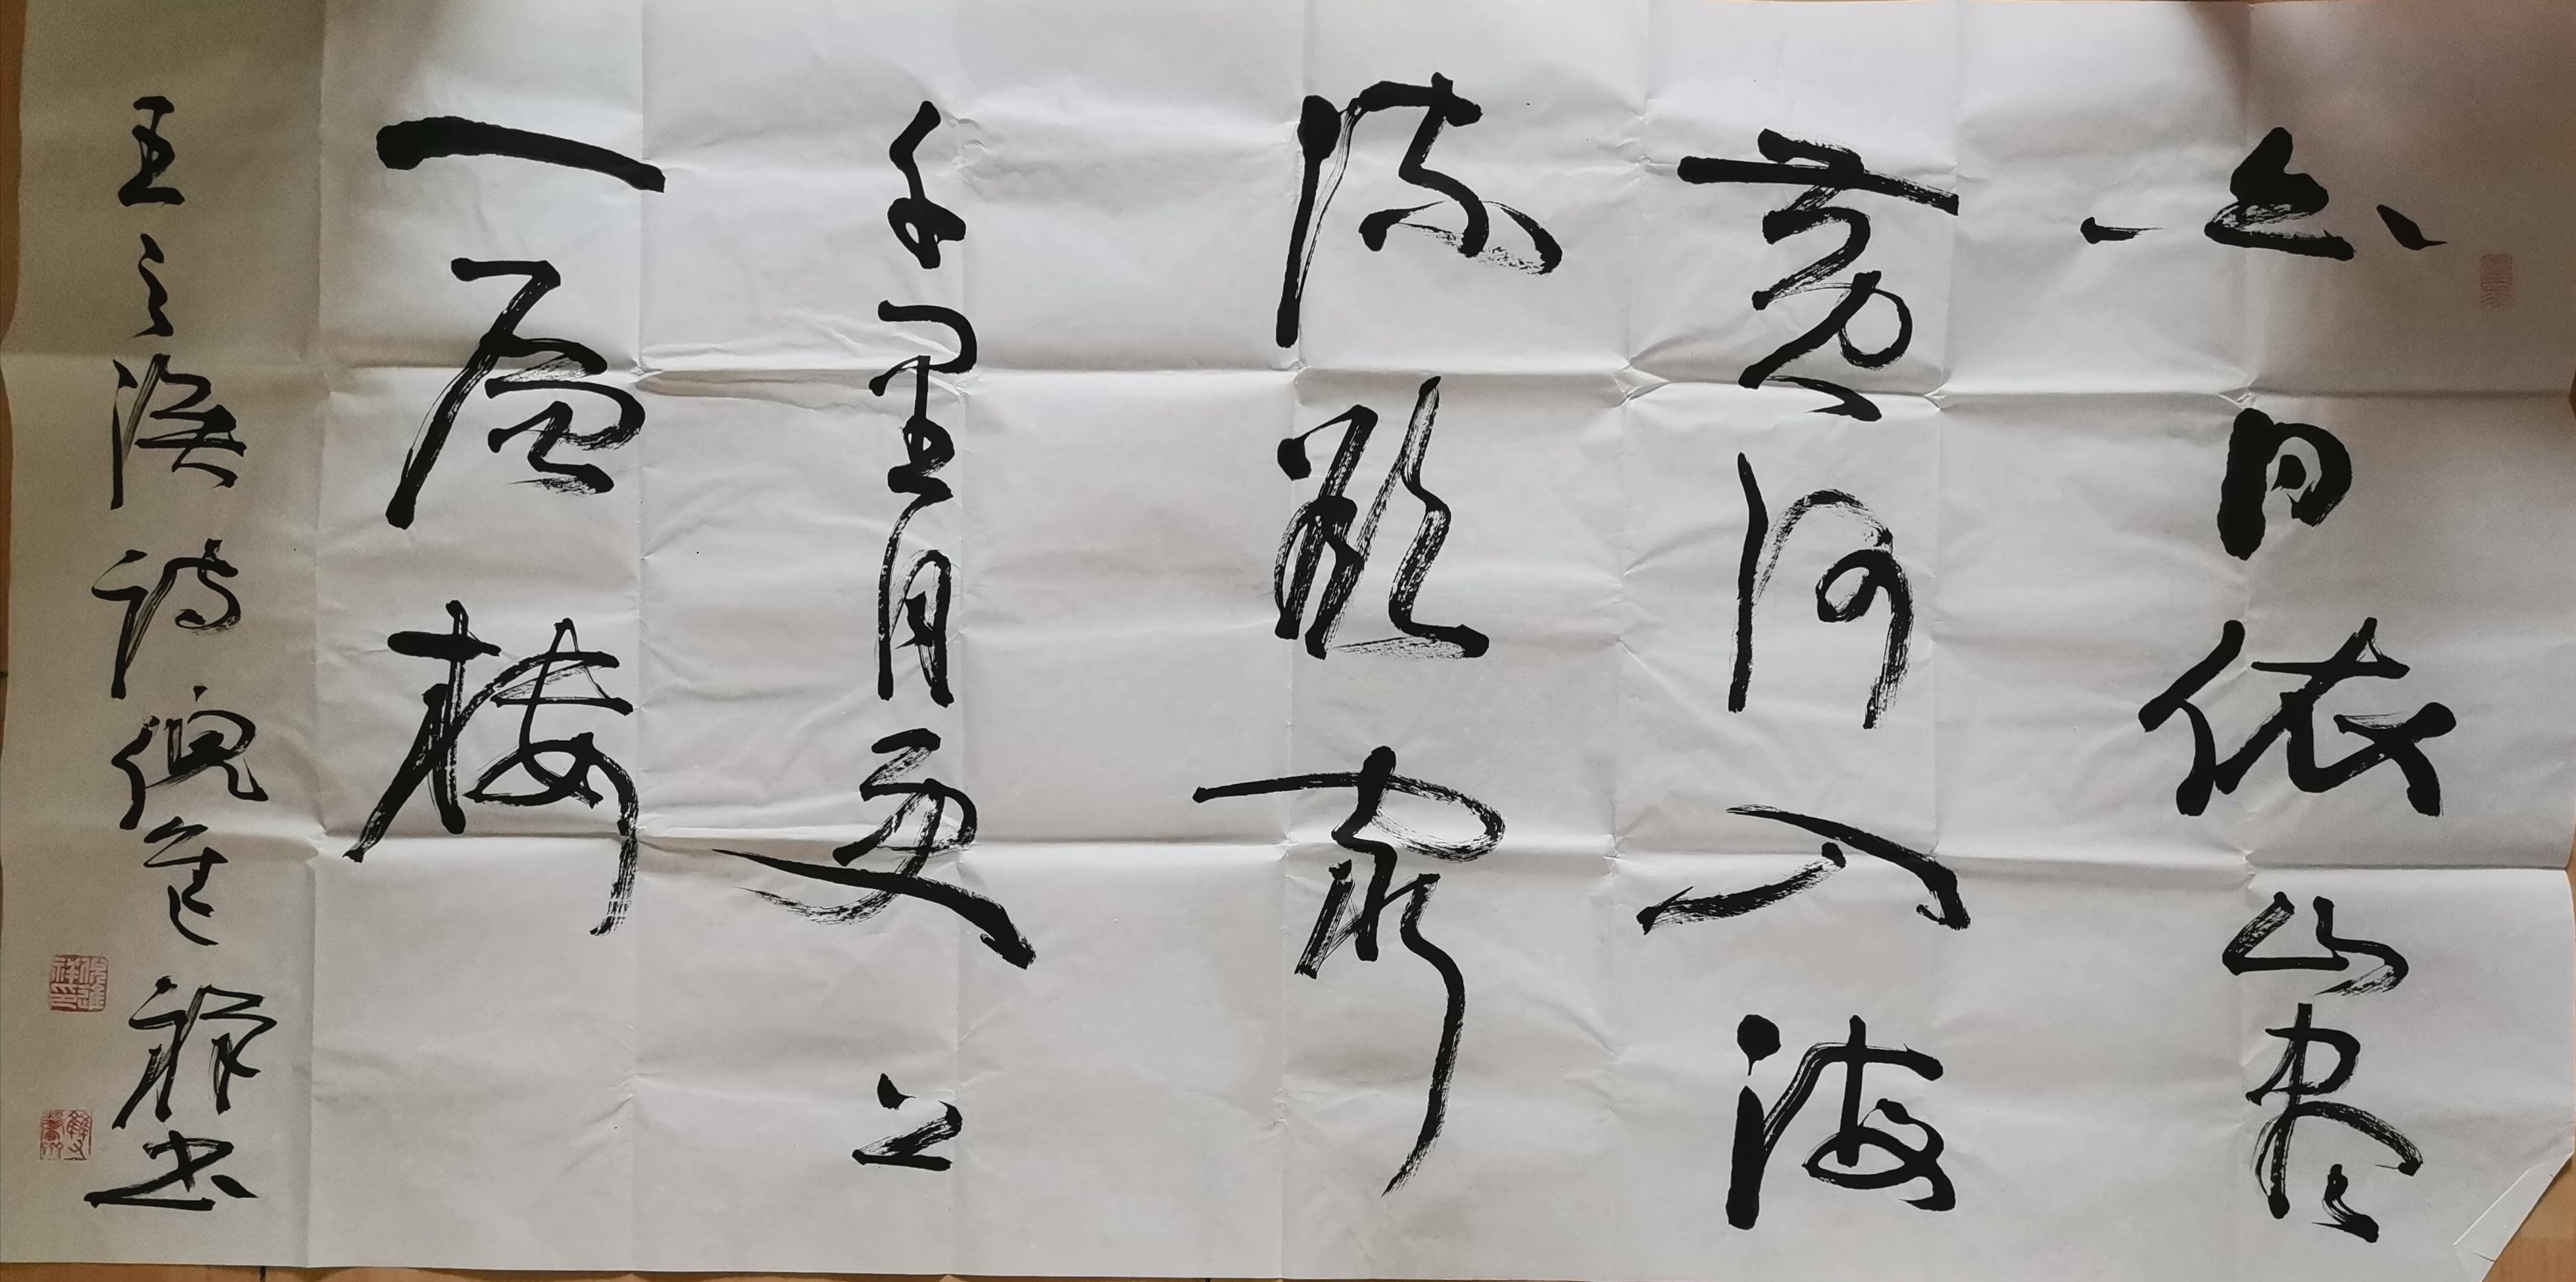 白日依山尽
黄河入海
流欲穷
千里目更上
一层楼
王之涣诗倪进祥书